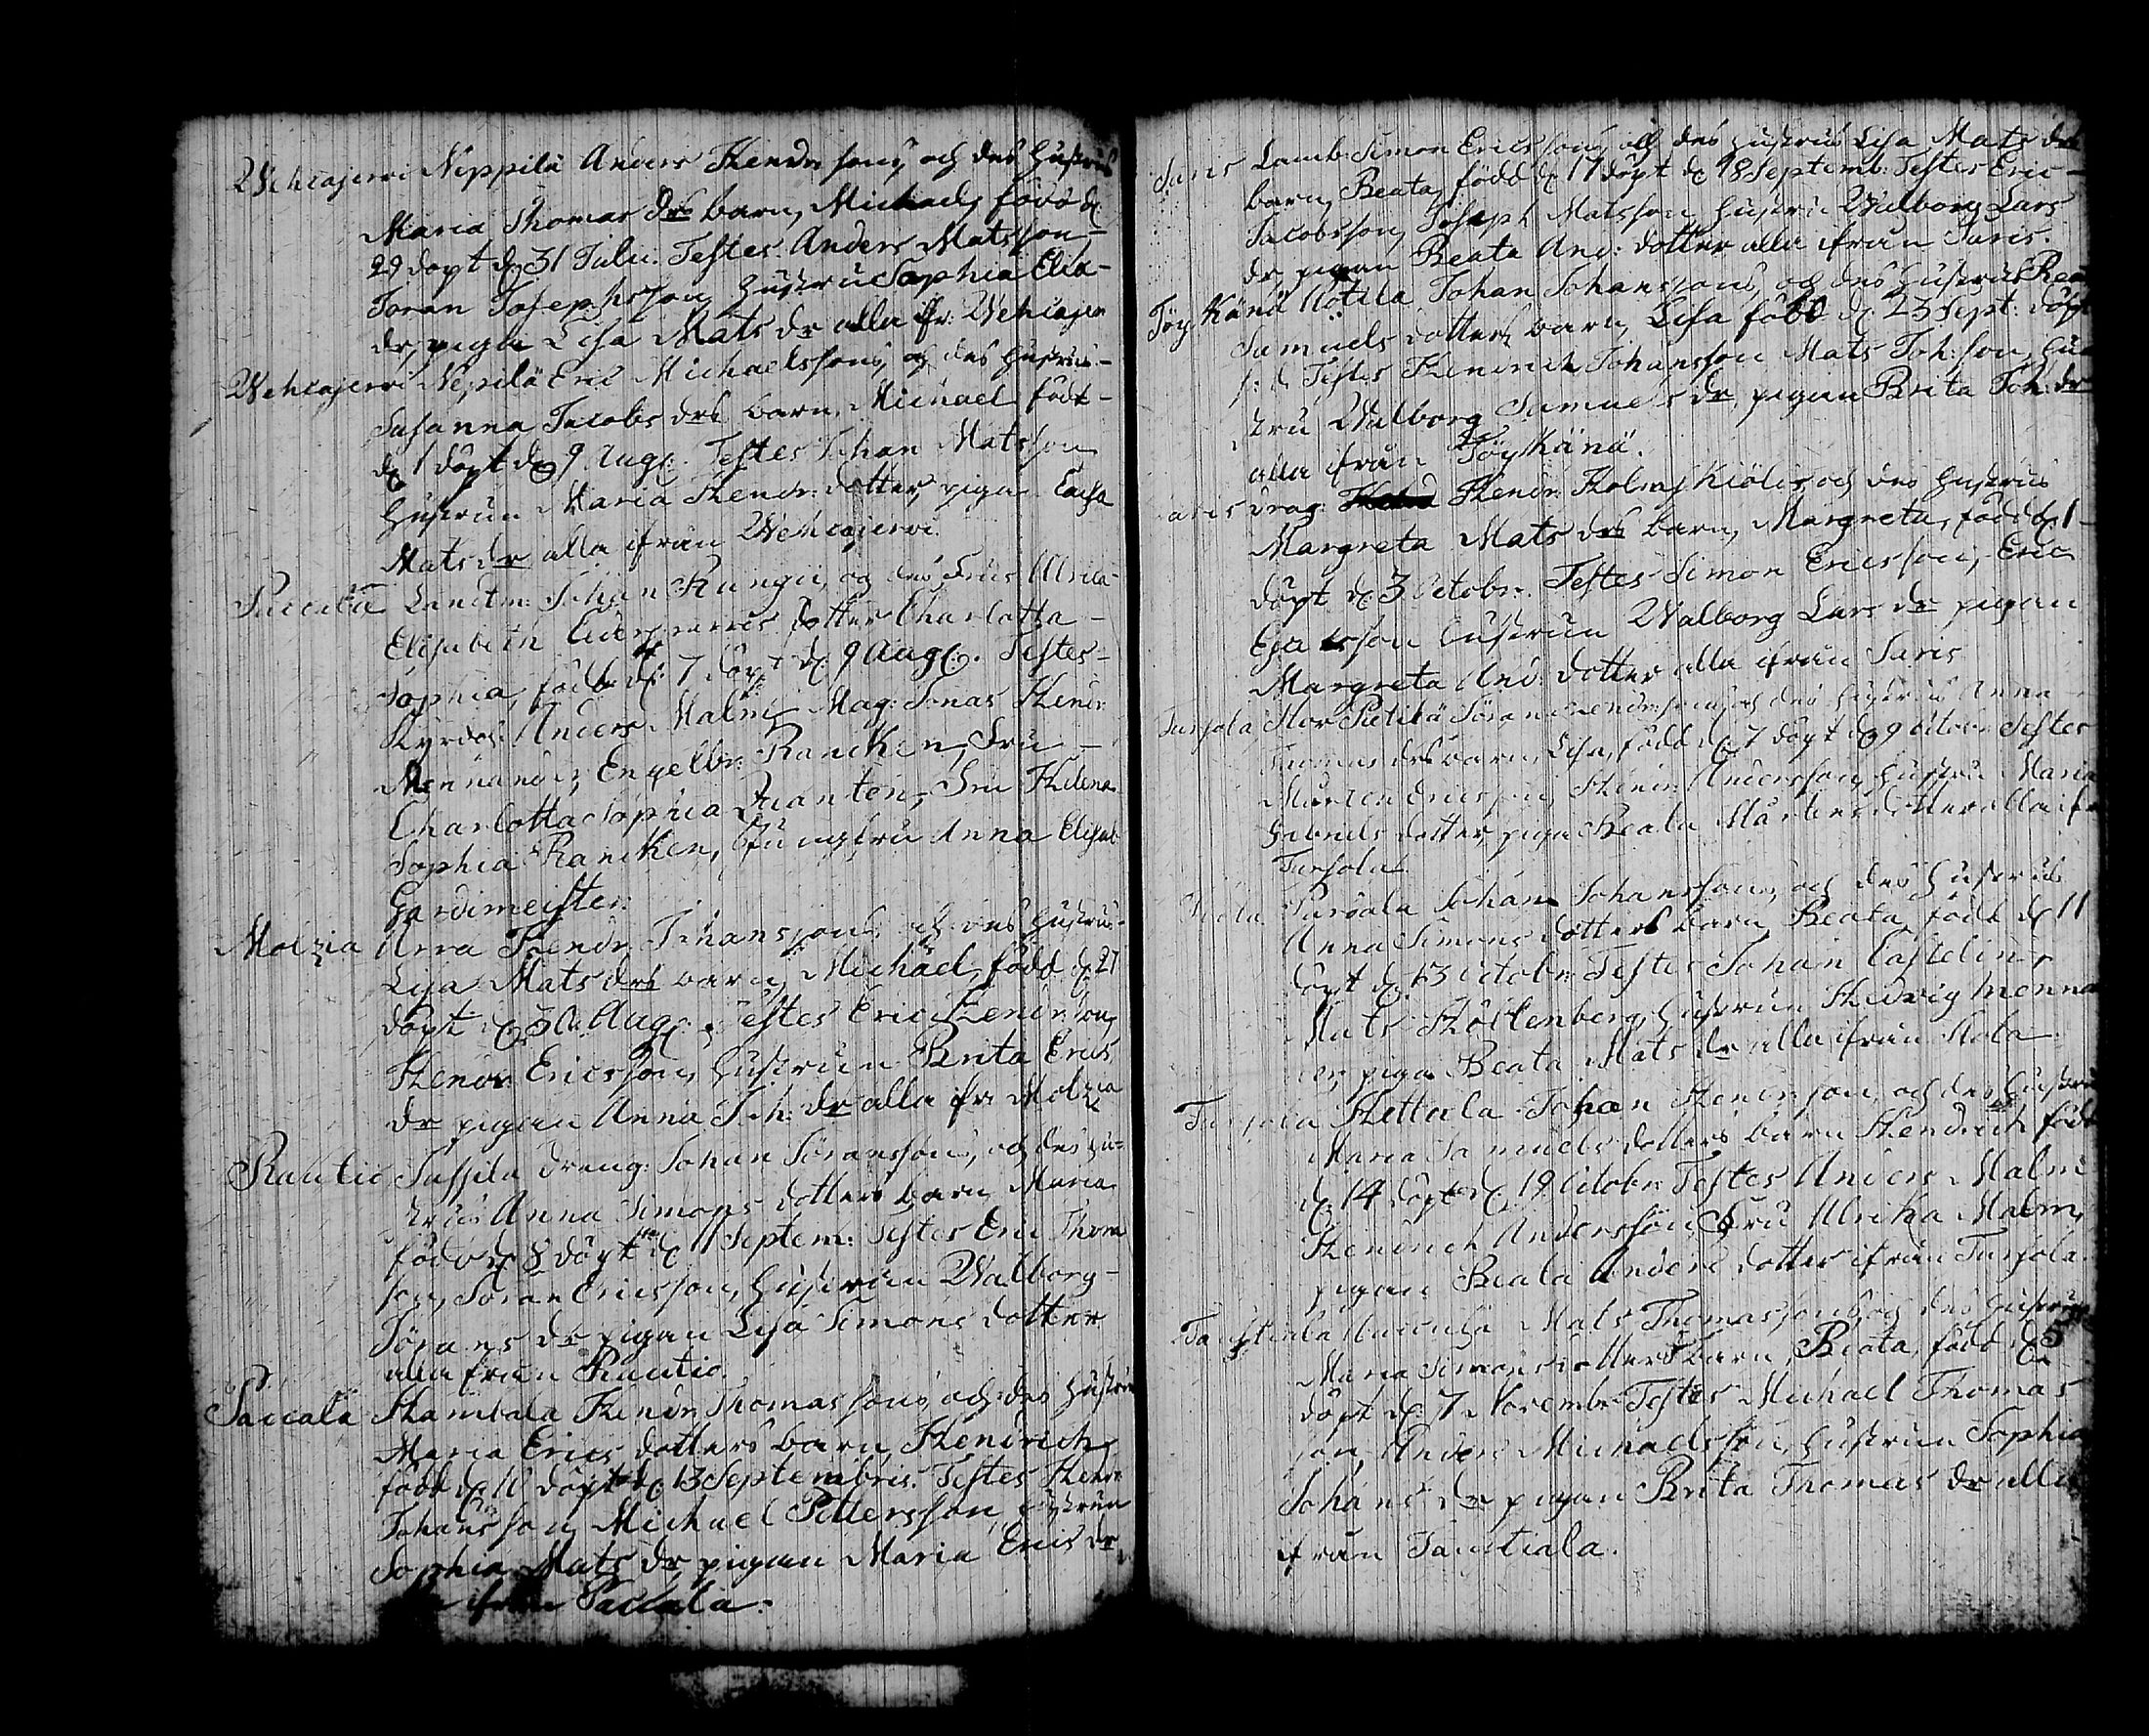 Wehcajervi Neppilä Anders Hendrssons, och des hustrus
Maria Thomas drs barn, Michael, född dȩ
29 döpt dȩ 31 Julii. Testes. Anders Matsson,
Jöran Josephsson, hustru Sophia Elia-
dr, pigan Lisa Mats dr alla fr: Wehcajerv
Wehcajervi Neppilä Eric Michaelssons, och des hustrus
Susanna Jacobs drs barn, Michael född
dȩ 1 döpt dȩ 9 Aug. Testes Johan Matsson
hustrun Maria Hendr: dotter, pigan Caisa
Mats dr alla ifrån Wehcajervi.
Saccala Landtm: Johan Rungii, och des Frus Ulrica
Elisabeth dotter Charlotta
Sophia, född dȩ 7 döpt dȩ 9 Aug. Testes
Kyrdoh: Anders Malm, Mag: Jonas Hendr:
Mennander, Engelbr: Rancken, Fru
Charlotta Sophia Quanten, Fru Helena
Sophia Rancken, Jungfru Anna Elisab:
Gardemeister.
Moizia Urra Hendr: Johanssons, och des hustrus
Lisa Mats drs barn, Michael, född dȩ 27
döpt dȩ 30 Aug. Testes Eric Hendrsson,
Hendr: Ericsson, hustrun Brita Erics
dr pigan Anna Joh: dr alla ifr: Moizia
Rautio Sussila dreng: Johan Jöranssons, och des hu-
strus Anna Simons dotters barn Maria
född dȩ 8 döpt dȩ 11 Septem: Testes Eric Thoma
son, Jöran Ericsson, hustrun Walborg
Jörans dr pigan Lisa Simons dotter
alla från Rautio.
Saccala Hambala Hendr: Thomassons, och des hustru
Maria Erics dotters barn Hendrich
född dȩ 10 döpt dȩ 13 Septembris. Testes Hendr:
Johansson, Michael Pettersson, hustrun
Sophia Mats dr, pigan Maria Erics dr
ifrån Saccala.
Saris Lamb: Simon Ericssons, och des hustrus Lisa Mats drs
barn, Beata, född dȩ 17 döpt dȩ 18 Septemb: Testes Eric
Jacobsson, Joseph Matsson, hustru Walborg Lars
dr, pigan Beata And: dotter alla ifrån Saris.
Töykänä Uotila Johan Johanssons, och des hustrus Bea
Samuels dotters barn, Lisa född dȩ 23 Sept: döpt
s: d: Testes Hendrich Johansson Mats Joh: son, hu
stru Walborg Samuels dr, pigan Brita Joh: dr
alla ifrån Töykänä.
aris drag: Hendr: Holmskiölds och des hustrus
Margreta Mats drs barn, Margreta, född dȩ 1
döpt dȩ 3 Octobr. Testes Simon Ericsson, Eric
Esaisson hustrun Walborg Lars dr pigan
Margreta And: dotter alla ifrån Saris
Tursola Stor Pietilä Jöran Hendrssons och des hustrus Anna
Thomas drs barn, Lisa, född dȩ 7 döpt dȩ 9 Octobr: Testes
Mårten Ericsson, Hendr: Andersson, hustru Maria
Gabriels dotter, pigan Beata Mårtens dotter alla ifr
Tursola.
Johan Johanssons, och des hustrus
Anna Simons dotters barn Beata, född dȩ 11
döpt dȩ 13 Octobr: Testes Johan Castelin,
Mats hustrun Hedvig Menna
er, piga Beata Mats dr alla ifrån
Tursola Hettula Johan Hendrsson, och des hustru
Maria Samuels dotters barn Hendrich född
dȩ 14 döpt dȩ 19 Octobr: Testes Anders Malm
Hendrich Andersson, Fru Ulrika Malm,
pigan Beata Anders dotter ifrån Tursola.
Mats Thomassons, och des hustrus
Maria Simons dotters barn, Beata, född dȩ 5
döpt dȩ 7 Novembr: Testes Michael Thomas
son, Anders Michaelsson, hustrun Sophia
Johans dr pigan Brita Thomas dr alla
ifrån